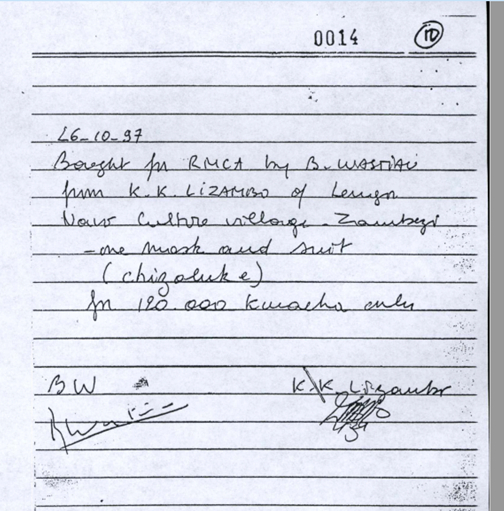 0014 10
26-10-97
Bought for RMCA by B. WASTIAU
from K.K. LIZAMBO of Lenga
Navo Culture village - Zambezi
- one mask and suit
(chizaluke)
for 120.000 Kwacha only
BW K.K. Lizambo